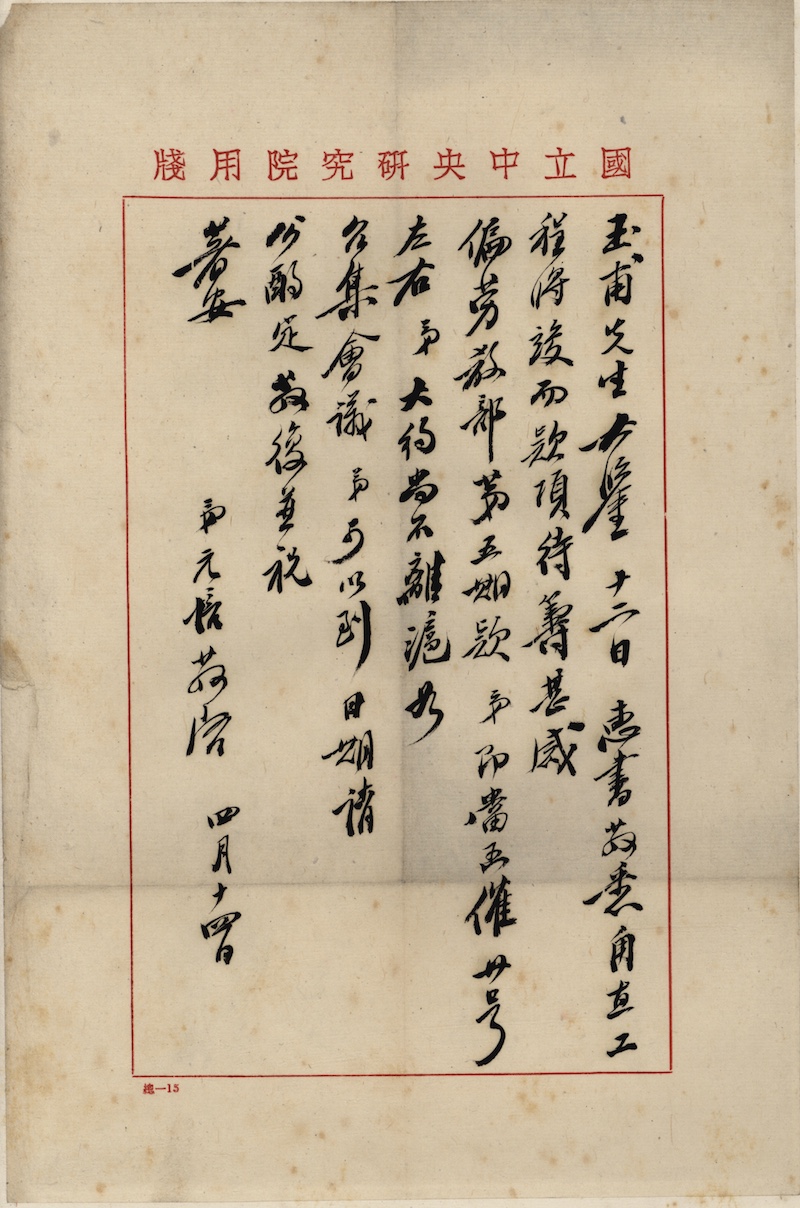 國立中央研究院用牋
玉甫先生大鑒十二日惠書敬悉甪直工
程將竣而款項待籌甚感
偏勞教部第五期款弟即當函催廿号
左右弟大約尚不離滬如
召集會議弟可以到日期請
公酌定敬復並祝
著安
弟元培敬啓 四月十四日
總一15